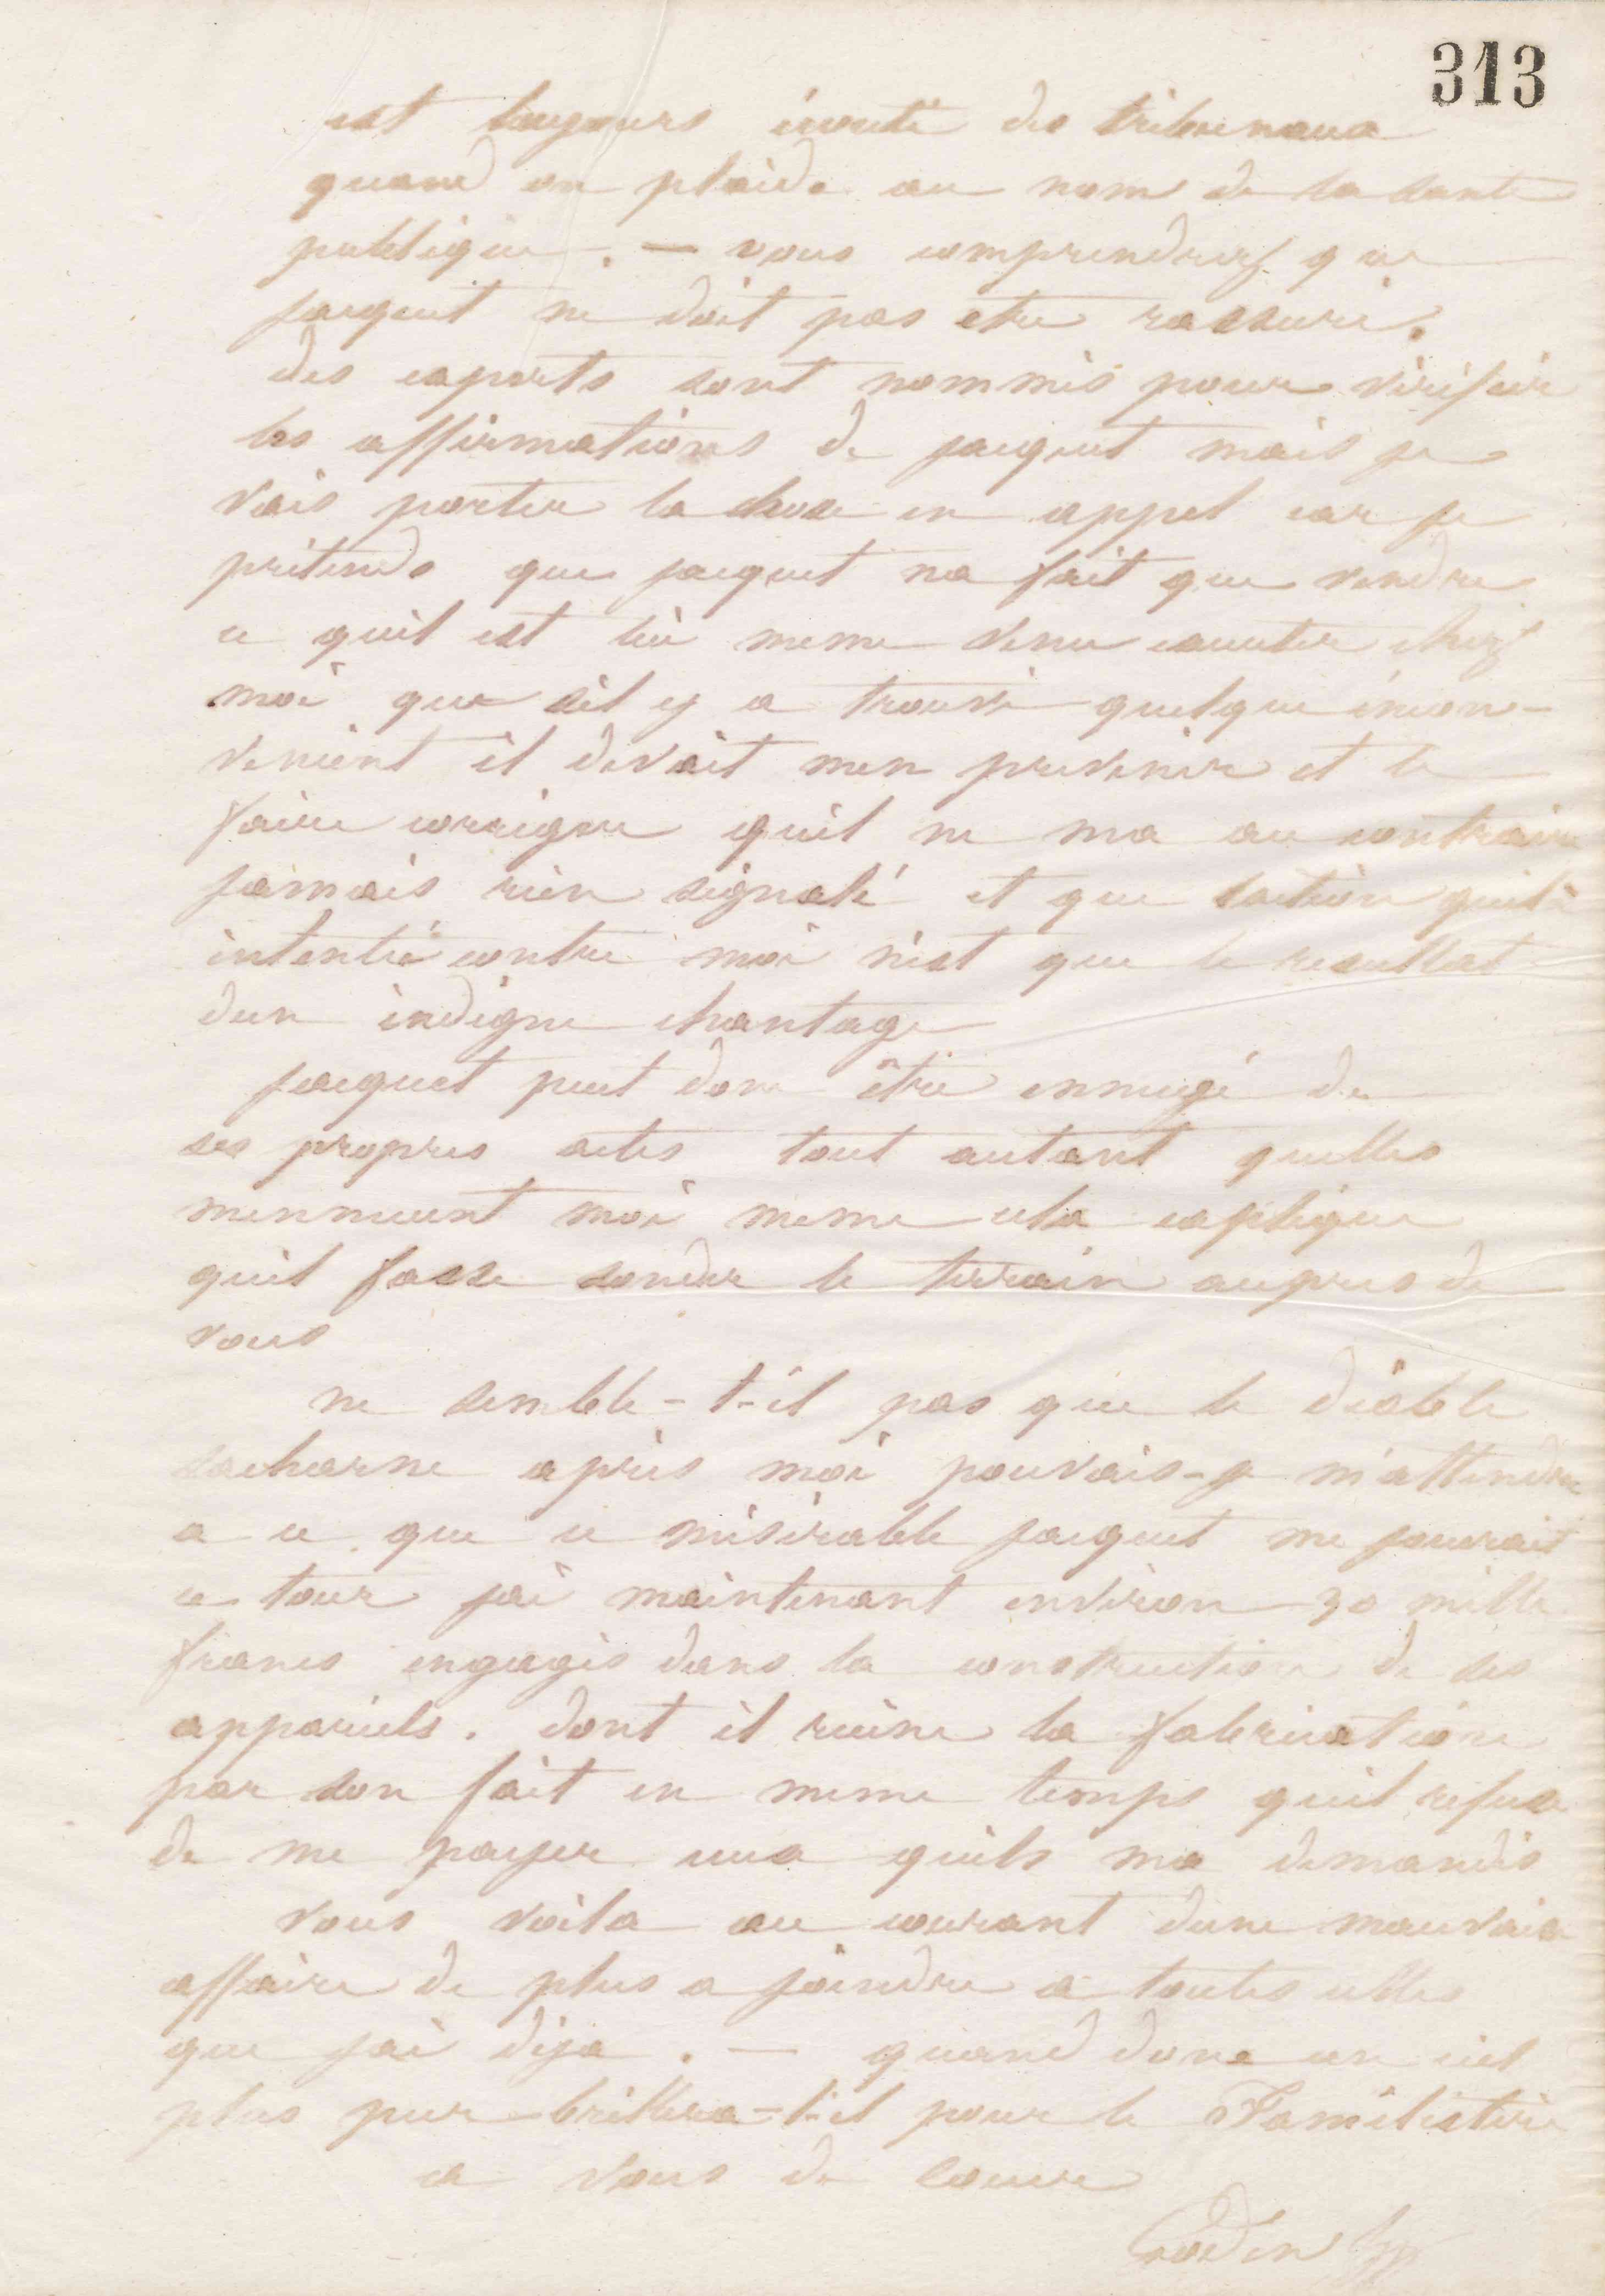 313
est toujours écouté des tribunaux
quand on plaide au nom de la santé
publique. — vous comprendrez que
jacquet ne doit pas etre rassuré.
des experts sont nommés pour vérifier
les affirmations de jacquet mais je
vais porter la chose en appel car je
prétends que jacquet na fait que vendre
ce quil est lui meme venu executer chez
moi que sil y a trouvé quelque incon-
venient il devait men prevenir et le
faire corriger quil ne ma au contraire
jamais rien signalé et que laction quil a
intentié contre moi nest que le resultat
dun indigne chantage
jacquet peut donc être ennuyé de
ses propres actes tout autant quelles
mennuient moi meme cela explique
quil fasse sonder le terrain aupres de
vous
ne semble-t-il pas que le diable
sacharne après moi pouvais-je m'attendre
a ce que ce misérable jacquet me jouerait
ce tour jai maintenant environ 30 mille
francs engagés dans la construction de ses
appareils. dont il ruine la fabrication
par son fait en meme temps quil refuse
de me payer ceux quils ma demandés
vous voila au courant dune mauvaise
affaire de plus a joindre a toutes celles
que jai déja. — quand donc un ciel
plus pur brillera-t-il pour le Familistère
a vous de coeur
Godin